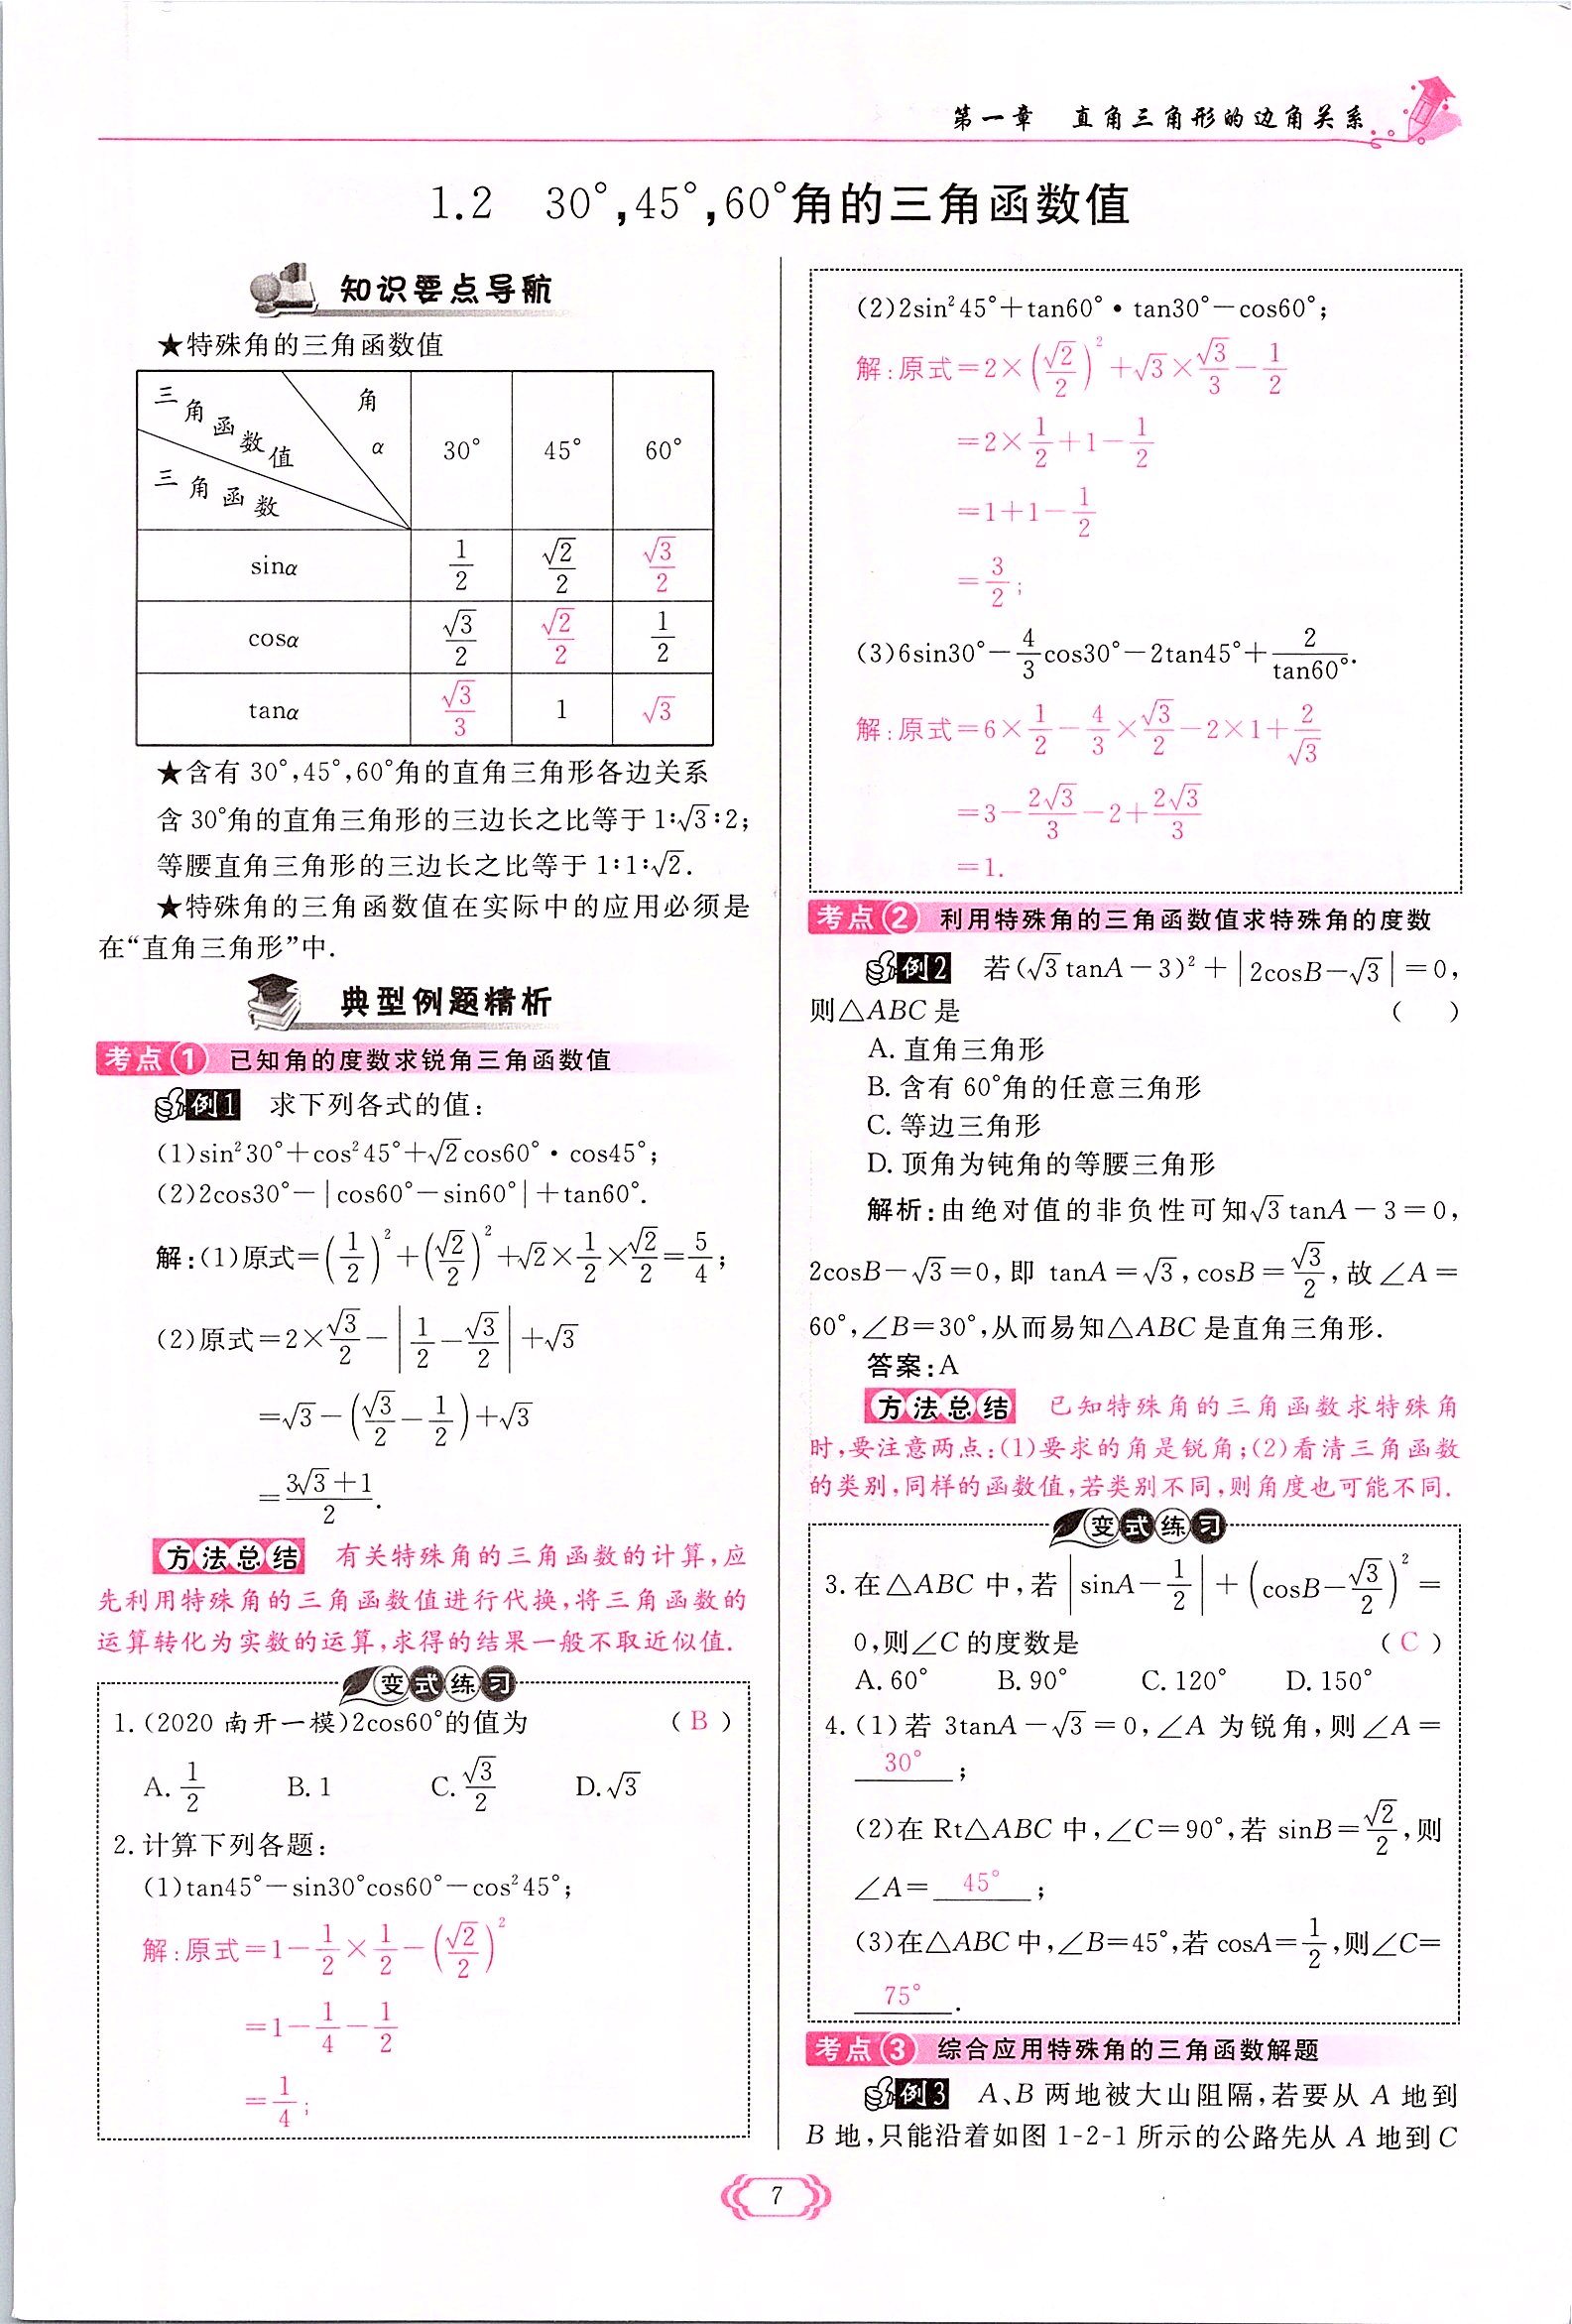 第一章　直角三角形的边角关系
1.2　30°,45°,60°角的三角函数值
知识要点导航
★特殊角的三角函数值
三角函数值　角α　三角函数　30°　45°　60°
sinα　1/2　√2/2　√3/2
cosα　√3/2　√2/2　1/2
tanα　√3/3　1　√3
★含有 30°,45°,60°角的直角三角形各边关系
含 30°角的直角三角形的三边长之比等于 1∶√3∶2;
等腰直角三角形的三边长之比等于 1∶1∶√2.
★特殊角的三角函数值在实际中的应用必须是
在“直角三角形”中.
典型例题精析
考点1　已知角的度数求锐角三角函数值
例1　求下列各式的值:
(1)sin²30°+cos²45°+√2cos60°·cos45°;
(2)2cos30°-|cos60°-sin60°|+tan60°.
解:(1)原式=(1/2)²+(√2/2)²+√2×1/2×√2/2=5/4;
(2)原式=2×√3/2-|1/2-√3/2|+√3
=√3-(√3/2-1/2)+√3
=(3√3+1)/2.
方法总结　有关特殊角的三角函数的计算,应
先利用特殊角的三角函数值进行代换,将三角函数的
运算转化为实数的运算,求得的结果一般不取近似值.
变式练习
1.(2020 南开一模)2cos60°的值为　( B )
A. 1/2　B. 1　C. √3/2　D. √3
2. 计算下列各题:
(1)tan45°-sin30°cos60°-cos²45°;
解:原式=1-1/2×1/2-(√2/2)²
=1-1/4-1/2
=1/4;
(2)2sin²45°+tan60°·tan30°-cos60°;
解:原式=2×(√2/2)²+√3×√3/3-1/2
=2×1/2+1-1/2
=1+1-1/2
=3/2;
(3)6sin30°-4/3cos30°-2tan45°+2/tan60°.
解:原式=6×1/2-4/3×√3/2-2×1+2/√3
=3-2√3/3-2+2√3/3
=1.
考点2　利用特殊角的三角函数值求特殊角的度数
例2　若(√3tanA-3)²+|2cosB-√3|=0,
则△ABC 是　(　)
A. 直角三角形
B. 含有 60°角的任意三角形
C. 等边三角形
D. 顶角为钝角的等腰三角形
解析:由绝对值的非负性可知√3tanA-3=0,
2cosB-√3=0,即 tanA=√3,cosB=√3/2,故∠A=
60°,∠B=30°,从而易知△ABC 是直角三角形.
答案:A
方法总结　已知特殊角的三角函数求特殊角
时,要注意两点:(1)要求的角是锐角;(2)看清三角函数
的类别,同样的函数值,若类别不同,则角度也可能不同.
变式练习
3. 在△ABC 中,若|sinA-1/2|+(cosB-√3/2)²=
0,则∠C 的度数是　( C )
A. 60°　B. 90°　C. 120°　D. 150°
4.(1)若 3tanA-√3=0,∠A 为锐角,则∠A=
30°;
(2)在 Rt△ABC 中,∠C=90°,若 sinB=√2/2,则
∠A= 45°;
(3)在△ABC 中,∠B=45°,若 cosA=1/2,则∠C=
75°.
考点3　综合应用特殊角的三角函数解题
例3　A、B 两地被大山阻隔,若要从 A 地到
B 地,只能沿着如图 1-2-1 所示的公路先从 A 地到 C
7